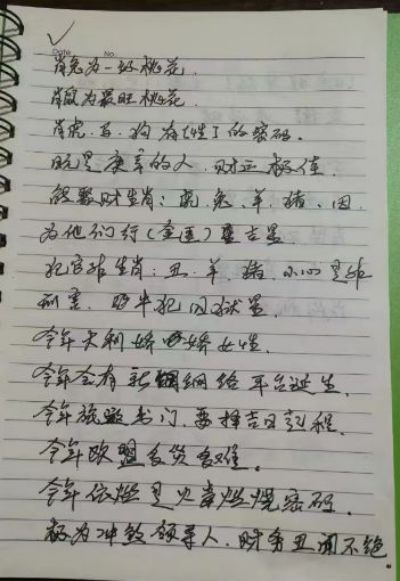 Date No.
肖兔为一好桃花.
肖鼠为最旺桃花.
肖虎.马.狗为性的密码.
既是庚辛的人.财运极佳.
能聚财生肖:虎.兔.羊.猪.因
为他们行(金匮)重吉星
犯官非生肖:丑.羊.猪.小心是非
刑害.肖牛犯囚狱星.
今年大利娇娇女性.
今年会有新网络平台诞生.
今年旅遨出门.要择吉日起程.
今年欧盟多灾多难。
今年依然是火毒燃烧密码.
极为冲煞领导人.财务丑闻不绝